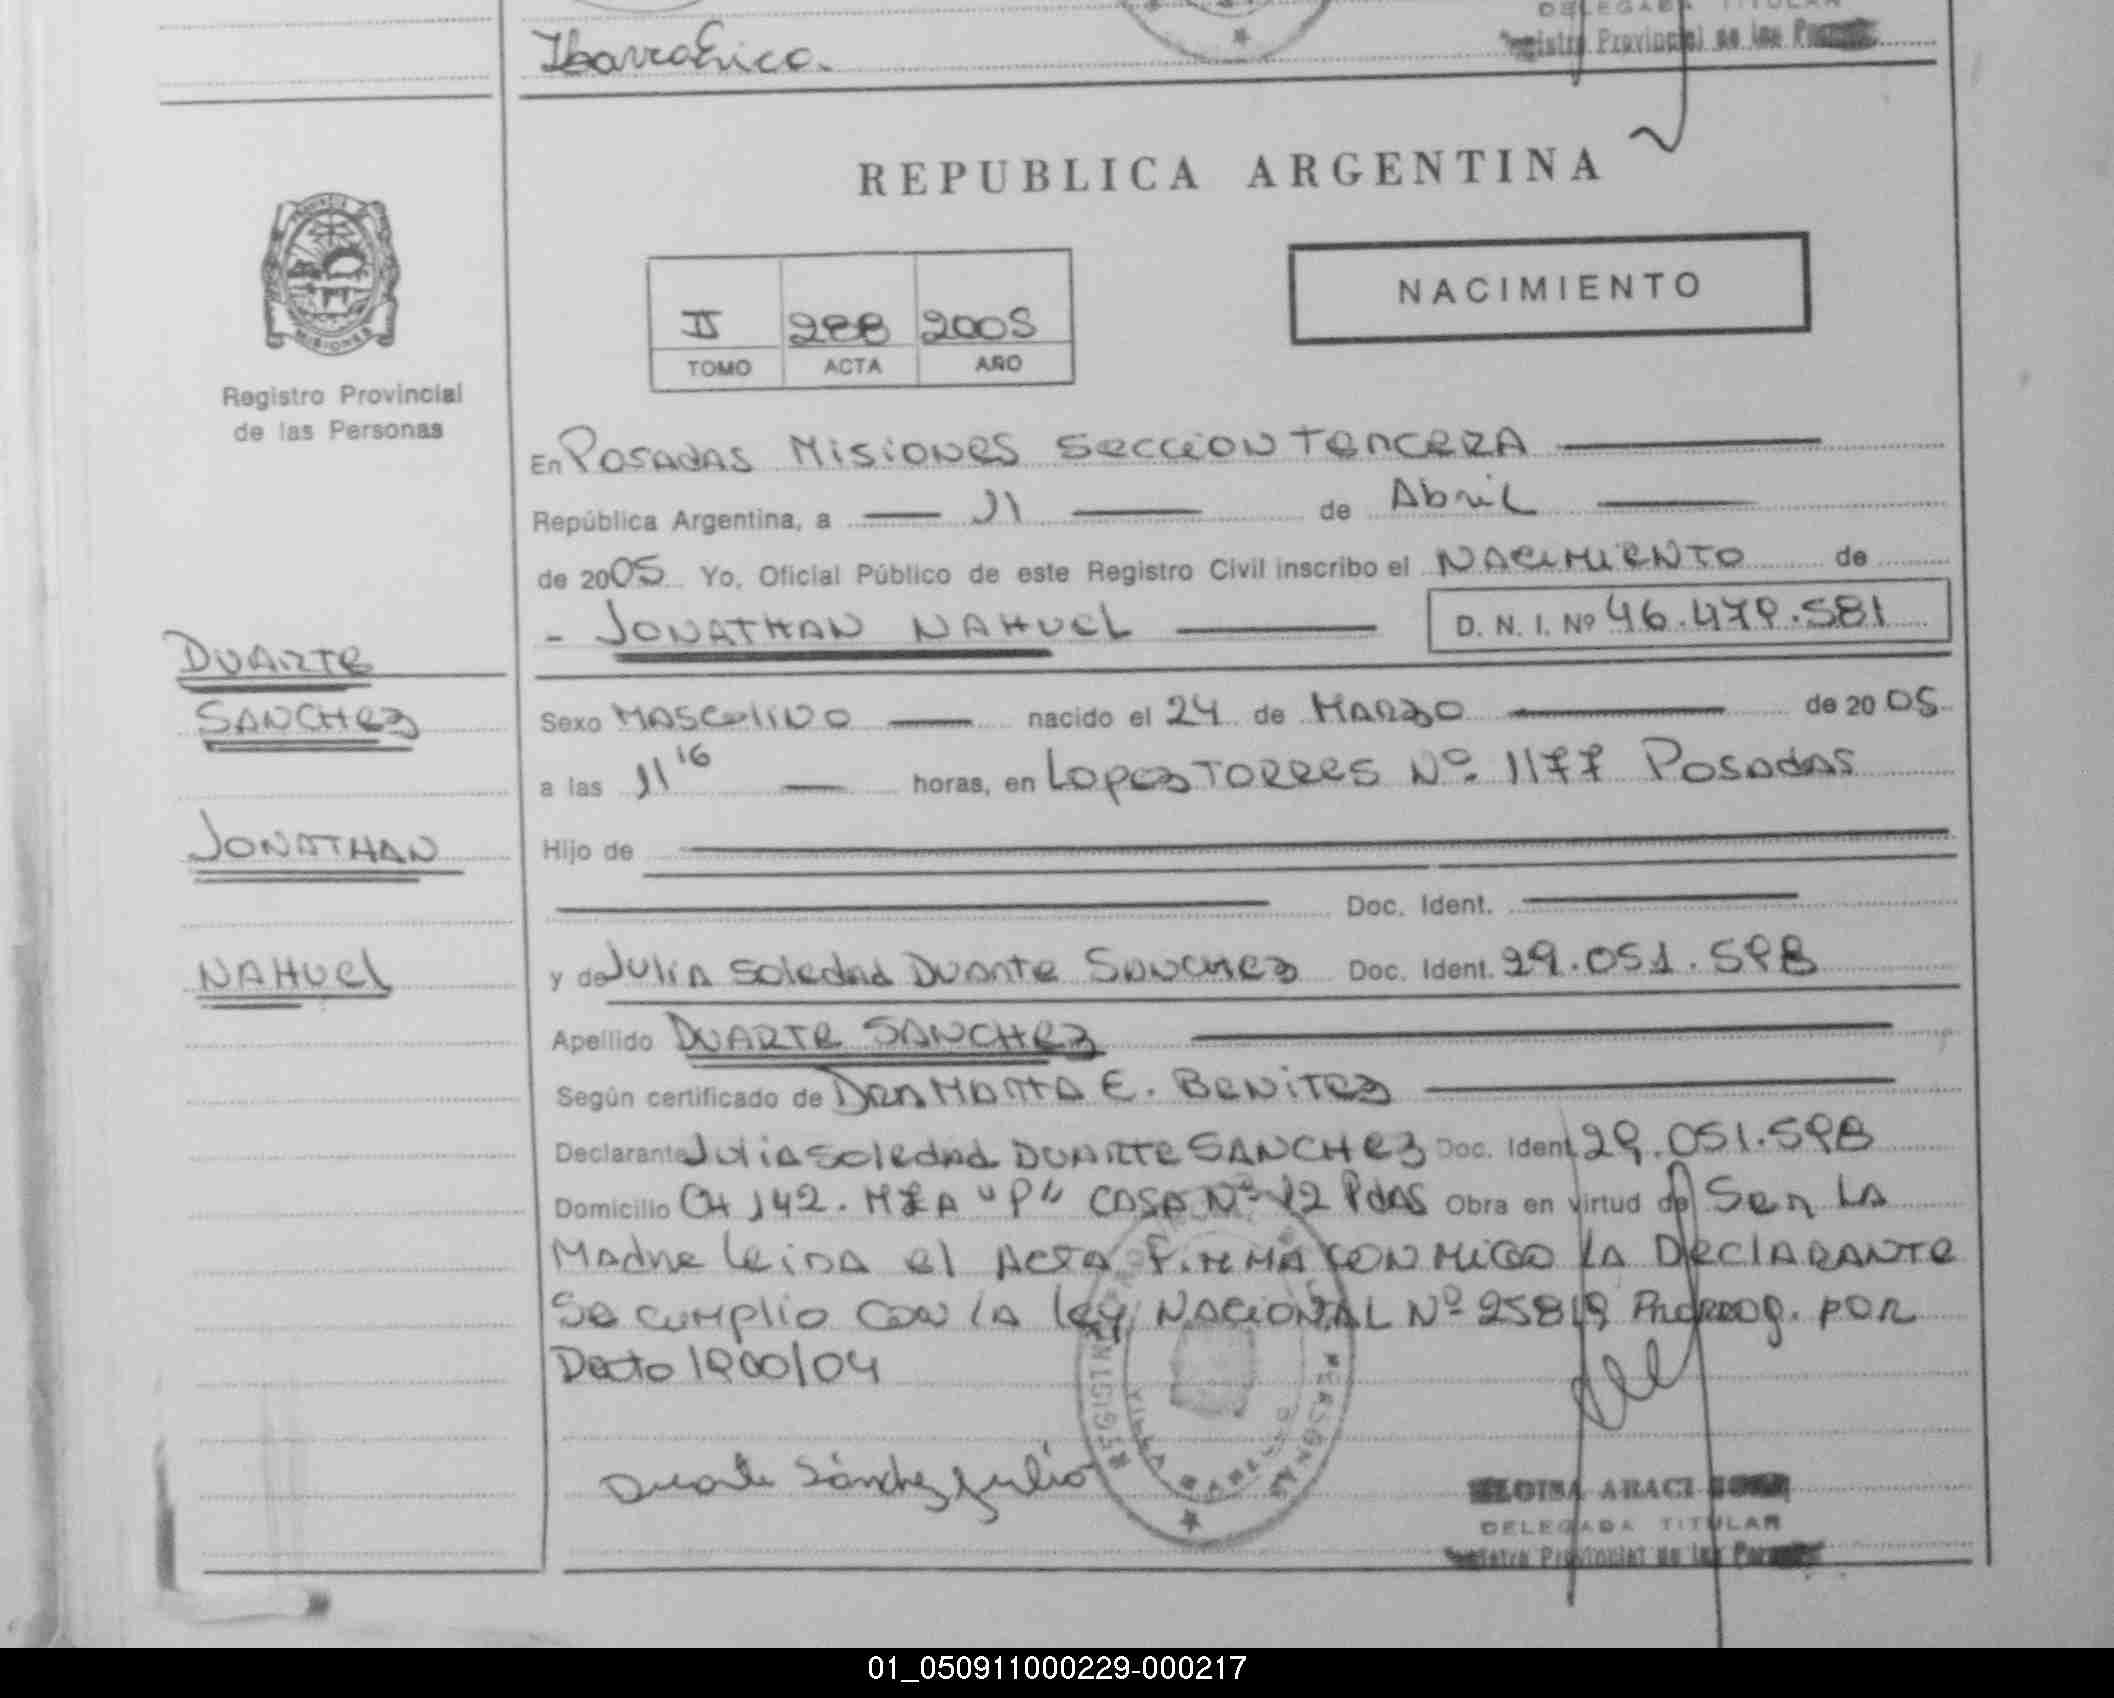 DELEGADA TITULAR
Registro Provincial de las
Ibarra Erica.
REPUBLICA ARGENTINA
PROVINCIA DE MISIONES
NACIMIENTO
II 288 2005
TOMO ACTA AÑO
Registro Provincial
de las Personas
En POSADAS MISIONES SECCION TERCERA
República Argentina, a 11 de Abril
de 2005 Yo, Oficial Público de este Registro Civil inscribo el NACIMIENTO de
- JONATHAN NAHUEL D. N. I. Nº 46.479.581
DUARTE
SANCHEZ
Sexo MASCULINO nacido el 24 de MARZO de 2005
a las 11 16 horas, en LOPEZ TORRES Nº 1177 POSADAS
JONATHAN
Hijo de
Doc. Ident.
NAHUEL
y de Julia Soledad Duarte Sanchez Doc. Ident. 29.051.598
Apellido DUARTE SANCHEZ
Según certificado de Dra MARTA E. BENITEZ
Declarante Julia Soledad DUARTE SANCHEZ Doc. Ident 29.051.598
Domicilio CH 142. MZA "P" CASA Nº 12 Pdas Obra en virtud de Ser LA
Madre leida el ACTA FIRMA CONMIGO LA DECLARANTE
Se cumplio con la ley NACIONAL Nº 25819 Prorrog. POR
Decto 1900/04
Duarte Sánchez Julia
REGISTRO PERSONAS
VILLA
ELOISA ARACI
DELEGADA TITULAR
Registro Provincial de las
01_050911000229-000217